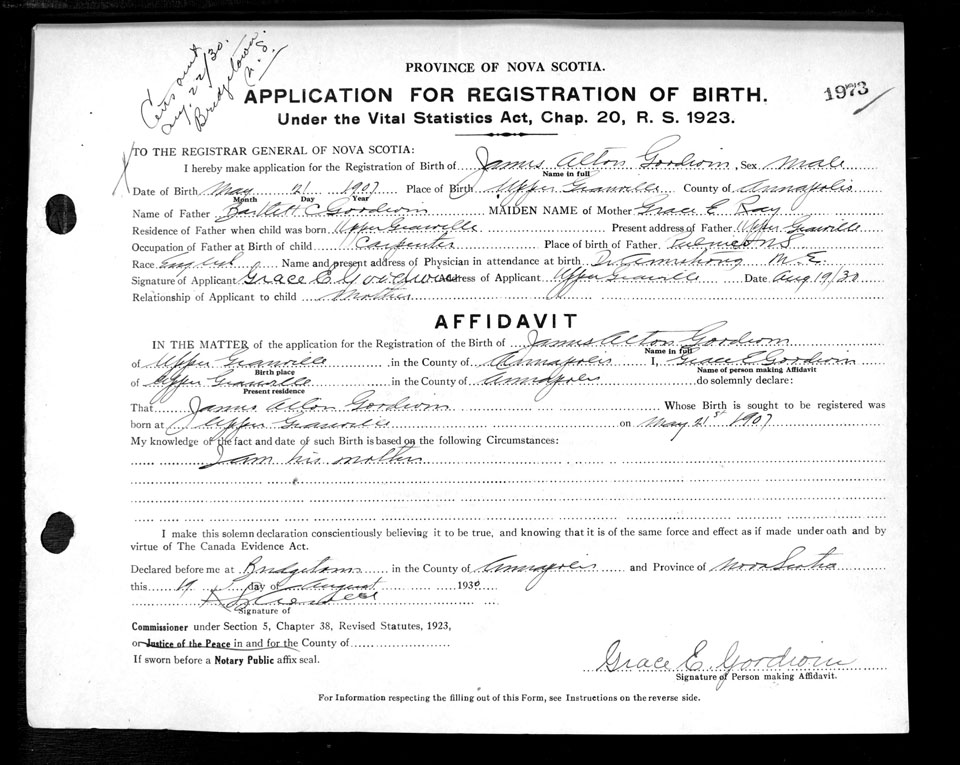 Aug. 22/30.
Bridgetown.
N.S.
PROVINCE OF NOVA SCOTIA.
APPLICATION FOR REGISTRATION OF BIRTH.
1973
Under the Vital Statistics Act, Chap. 20, R. S. 1923.
TO THE REGISTRAR GENERAL OF NOVA SCOTIA:
I hereby make application for the Registration of Birth of James Alton Goodwin, Sex Male
Name in full
Date of Birth May 21 1907 Place of Birth Upper Granville County of Annapolis
Month Day Year
Name of Father C Goodwin MAIDEN NAME of Mother Grace E Ray
Residence of Father when child was born Upper Granville Present address of Father Upper Granville
Occupation of Father at Birth of child Carpenter Place of birth of Father. Pubnico N S
Race English Name and present address of Physician in attendance at birth Dr Armstrong
Signature of Applicant Grace E Goodwin Address of Applicant Upper Granville Date Aug 19/30
Relationship of Applicant to child Mother
AFFIDAVIT
IN THE MATTER of the application for the Registration of the Birth of James Alton Goodwin
Name in full
of Upper Granville in the County of Annapolis I, Grace E Goodwin
Birth place Name of person making Affidavit
of Upper Granville in the County of Annapolis do solemnly declare:
Present residence
That James Alton Goodwin Whose Birth is sought to be registered was
born at Upper Granville on May 21st 1907
My knowledge of the fact and date of such Birth is based on the following Circumstances:
I am his mother
I make this solemn declaration conscientiously believing it to be true, and knowing that it is of the same force and effect as if made under oath and by
virtue of The Canada Evidence Act.
Declared before me at Bridgetown in the County of Annapolis and Province of Nova Scotia
this 19 day of August 1930
Signature of
Commissioner under Section 5, Chapter 38, Revised Statutes, 1923,
or Justice of the Peace in and for the County of
If sworn before a Notary Public affix seal.
Grace E. Goodwin
Signature of Person making Affidavit.
For Information respecting the filling out of this Form, see Instructions on the reverse side.